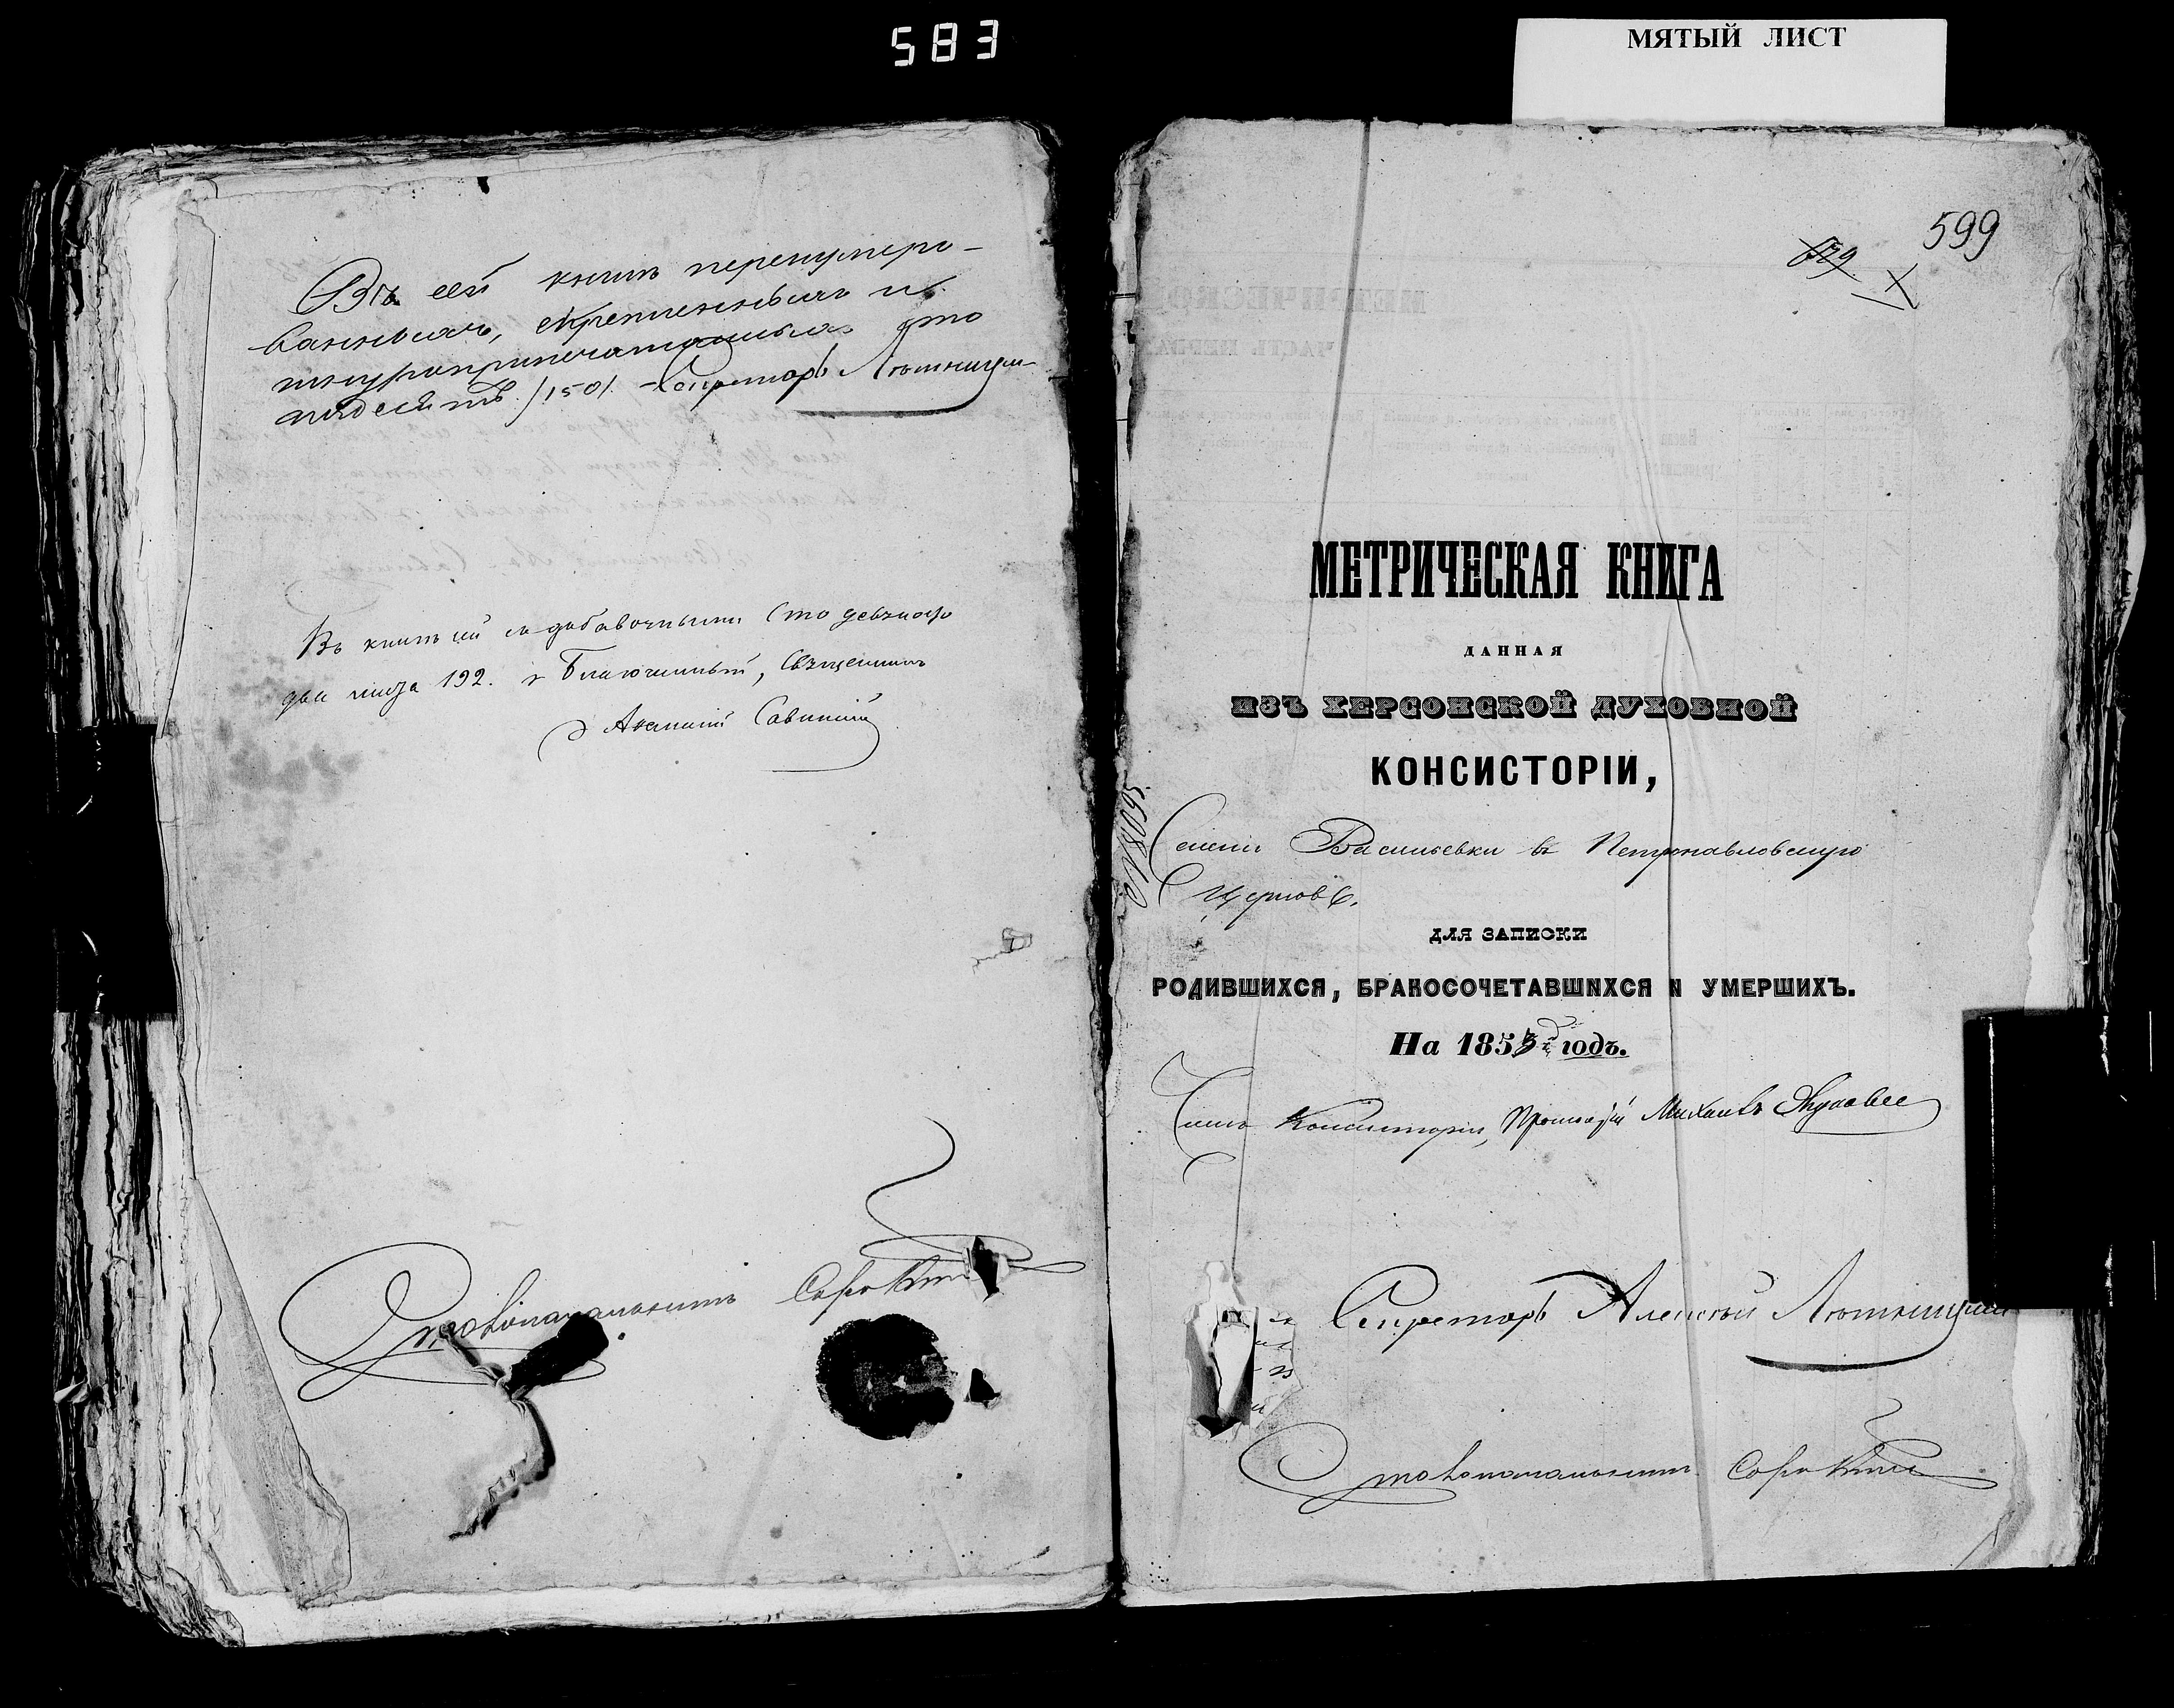 583
МЯТЫЙ ЛИСТ
Въ сей книгѣ перенумеро-
ванныхъ, скрепленныхъ и
шнуроприпечатанныхъ сто
пятьдесятъ /150/. Секретарь
Въ книгѣ сей съ добавочными сто девяносто
два листа 192. Благочинный, Священникъ
Ананий Савицкий
Столоначальникъ Сорокинъ
599
МЕТРИЧЕСКАЯ КНИГА
ДАННАЯ
ИЗЪ ХЕРСОНСКОЙ ДУХОВНОЙ
КОНСИСТОРІИ,
№ 18095
Селенія Васильевки въ Петропавловскую
Церковь.
ДЛЯ ЗАПИСКИ
РОДИВШИХСЯ, БРАКОСОЧЕТАВШИХСЯ И УМЕРШИХЪ.
На 1853й годъ.
Членъ Консисторіи, Протоіерей Михаилъ
Секретарь Алексѣй
Столоначальникъ Сорокинъ